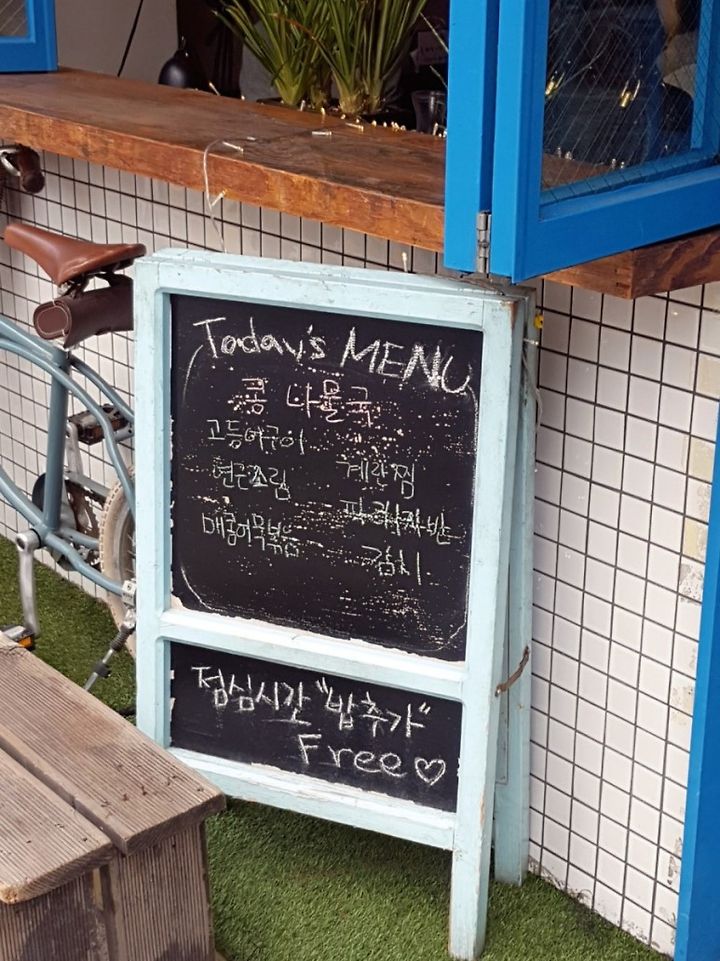 Today's MENU
콩나물국
고등어구이
연근조림 계란찜
파래자반
매콤어묵볶음 김치
점심시간 "밥추가"
Free♡